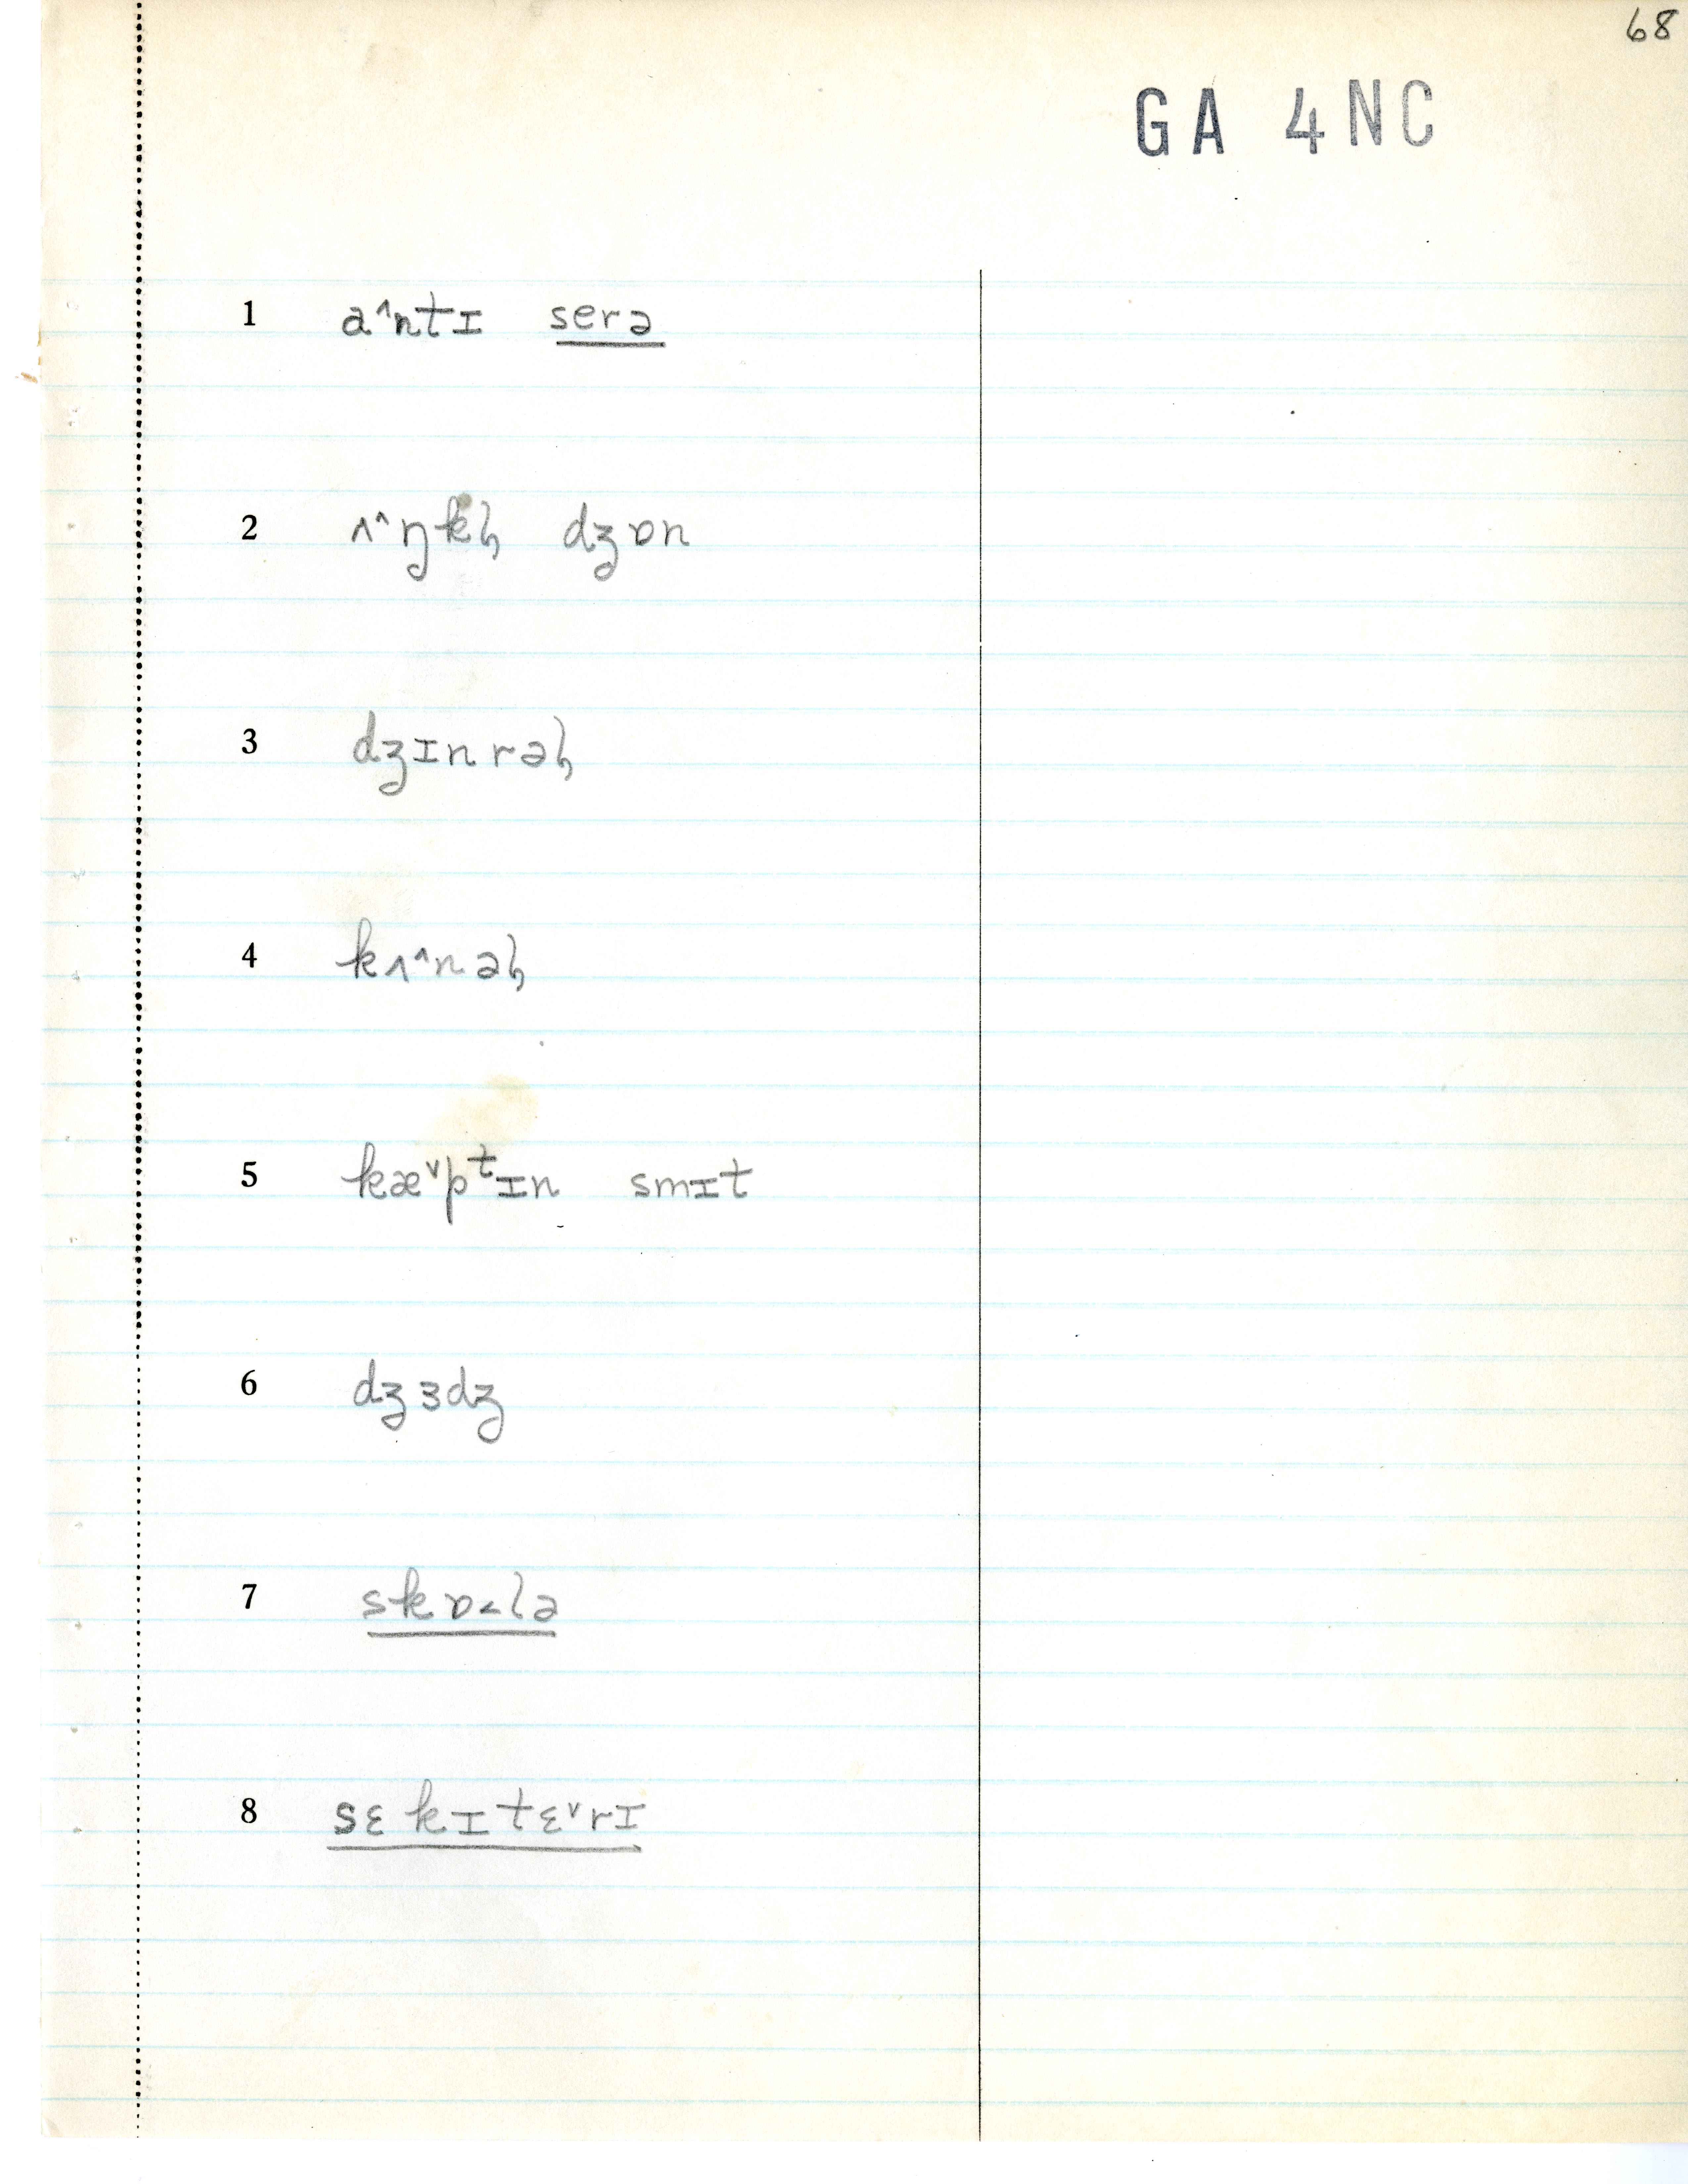 68
GA 4NC
1 a^ntɪ serə
2 ʌ^ŋkl̩ dʒɒn
3 dʒɪnrəl̩
4 kʌ^nəl̩
5 kæ˅pᵗɪn smɪt
6 dʒɜdʒ
7 skɒ˂lə
8 sɛkɪtɛ˅rɪ